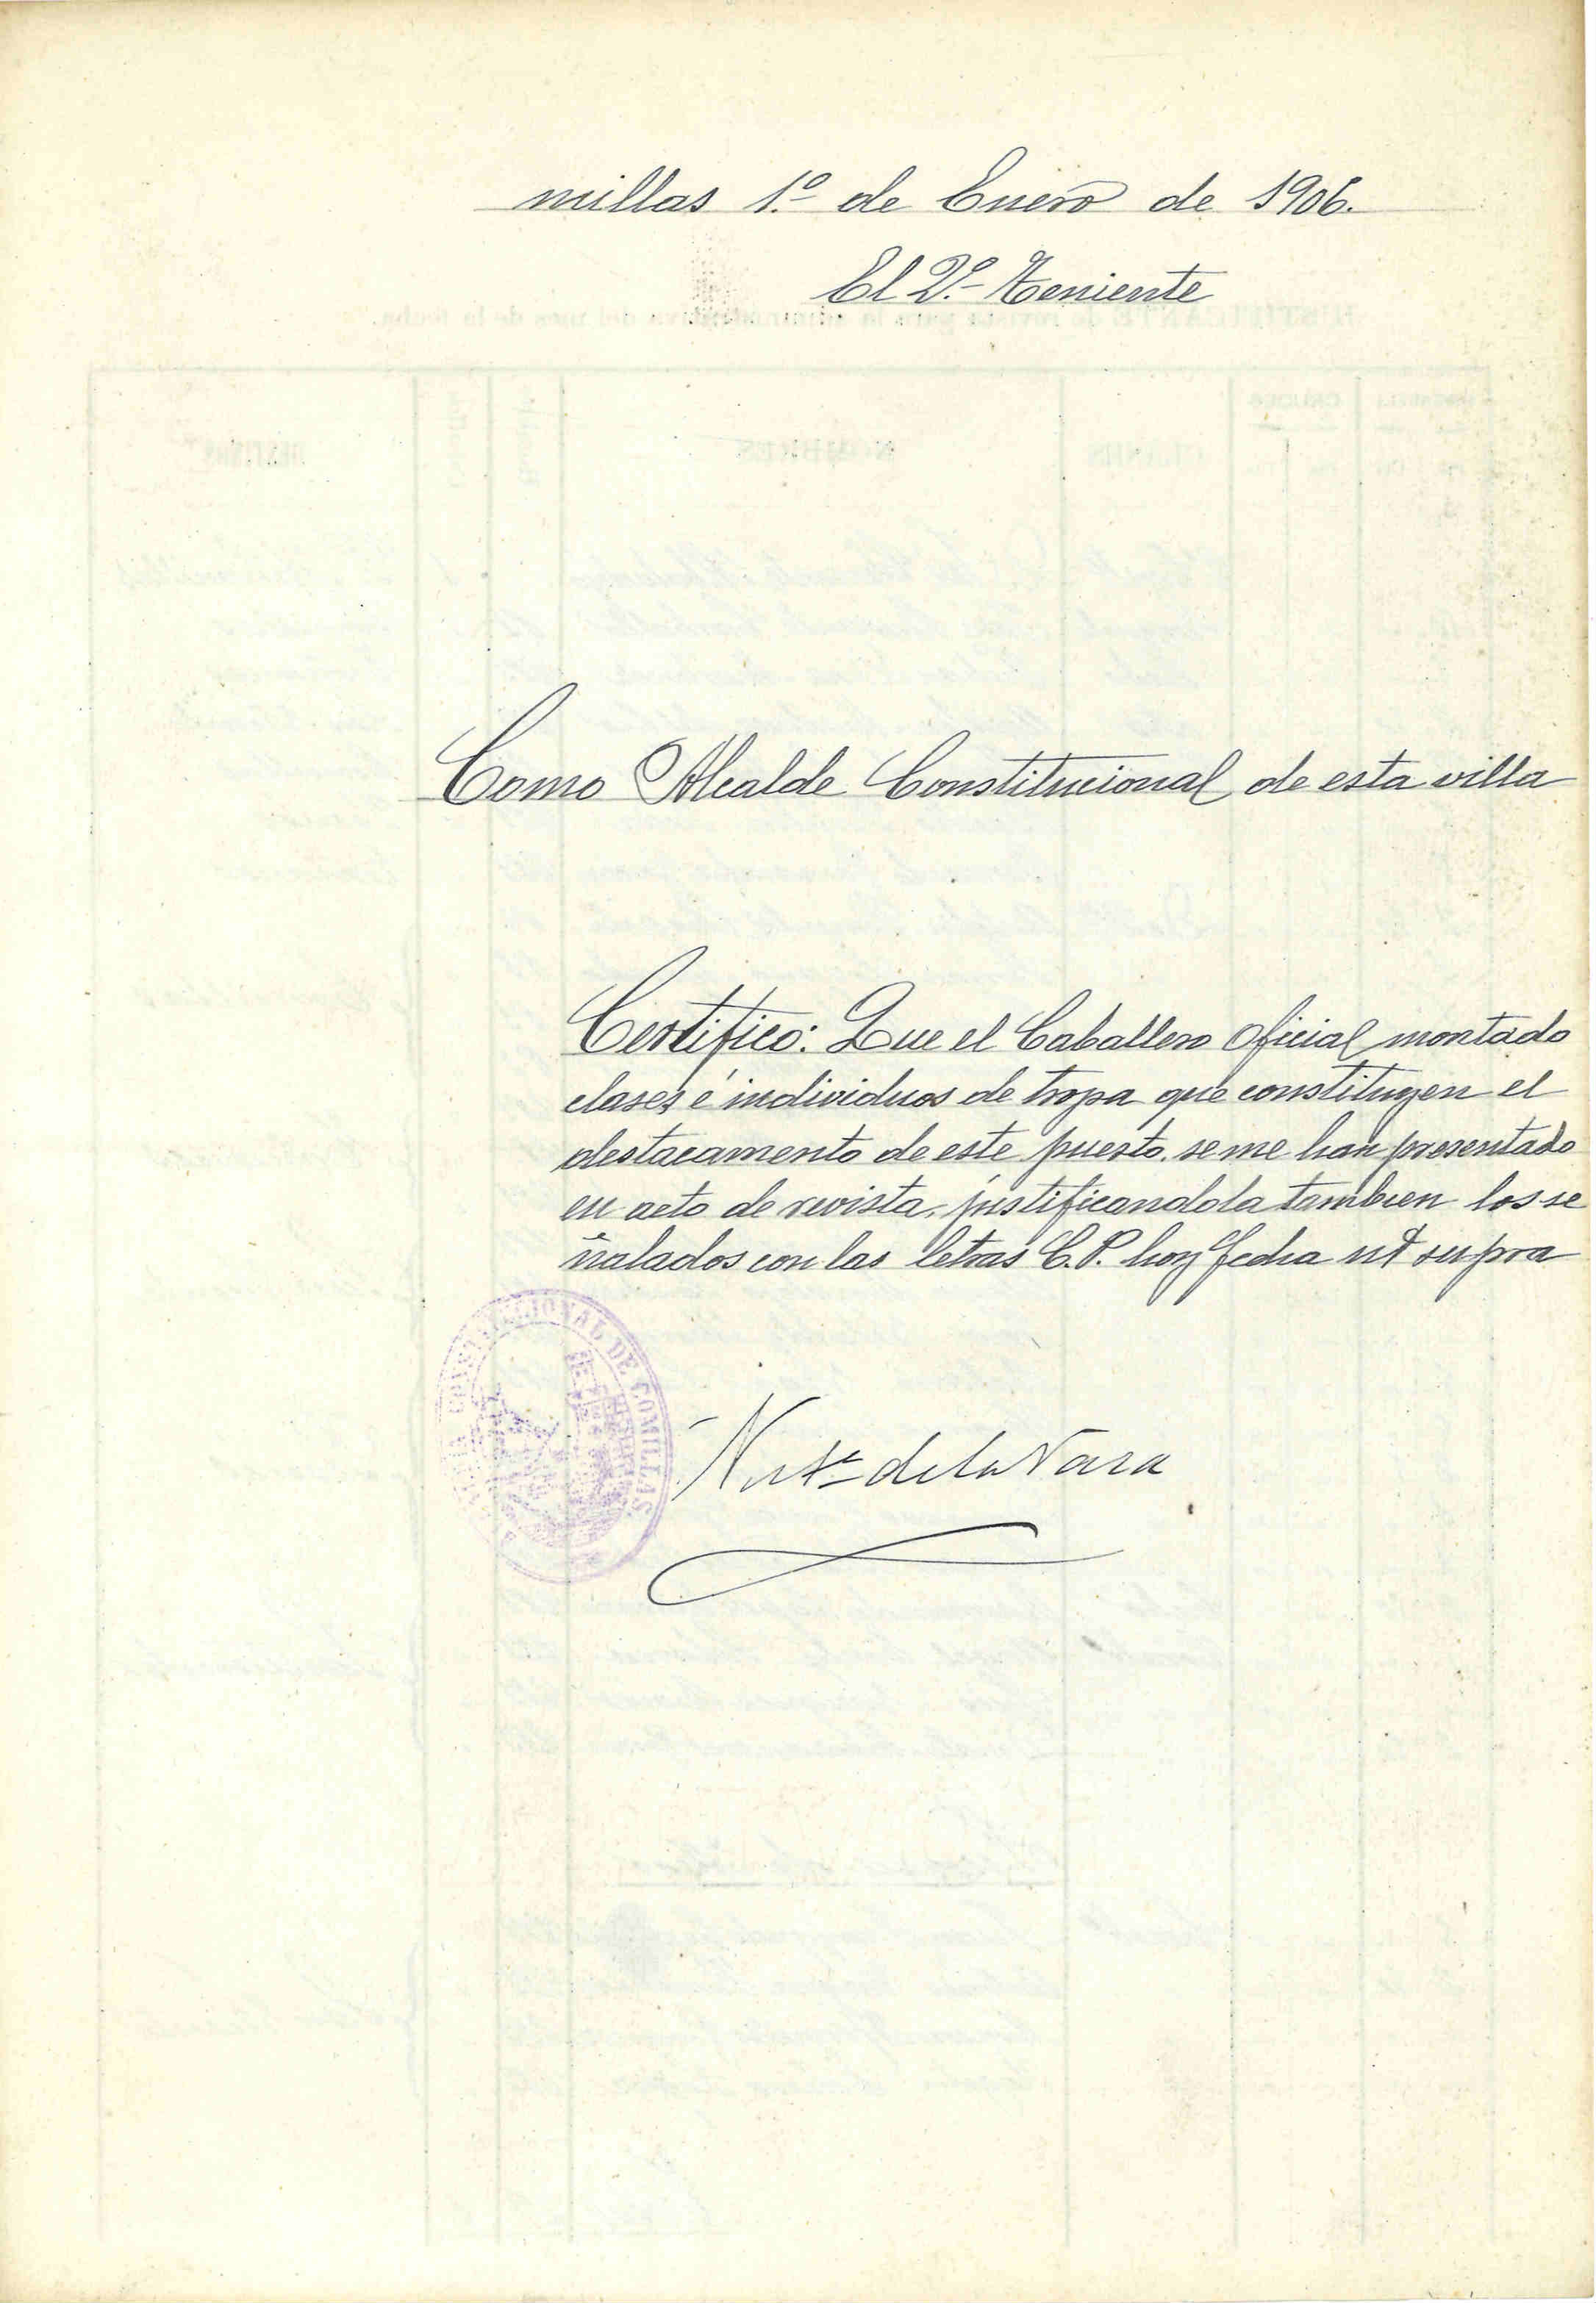 millas 1.º de Enero de 1906.
El 2.º Teniente
Como Alcalde Constitucional de esta villa
Certifico: Que el Caballero Oficial montado
clases é individuos de tropa que constituyen el
destacamento de este puesto, se me han presentado
en acto de revista, justificandola tambien los se
ñalados con las letras C.P. hoy fecha ut supra
CONSTITUCIONAL DE COMILLAS
de la Vara